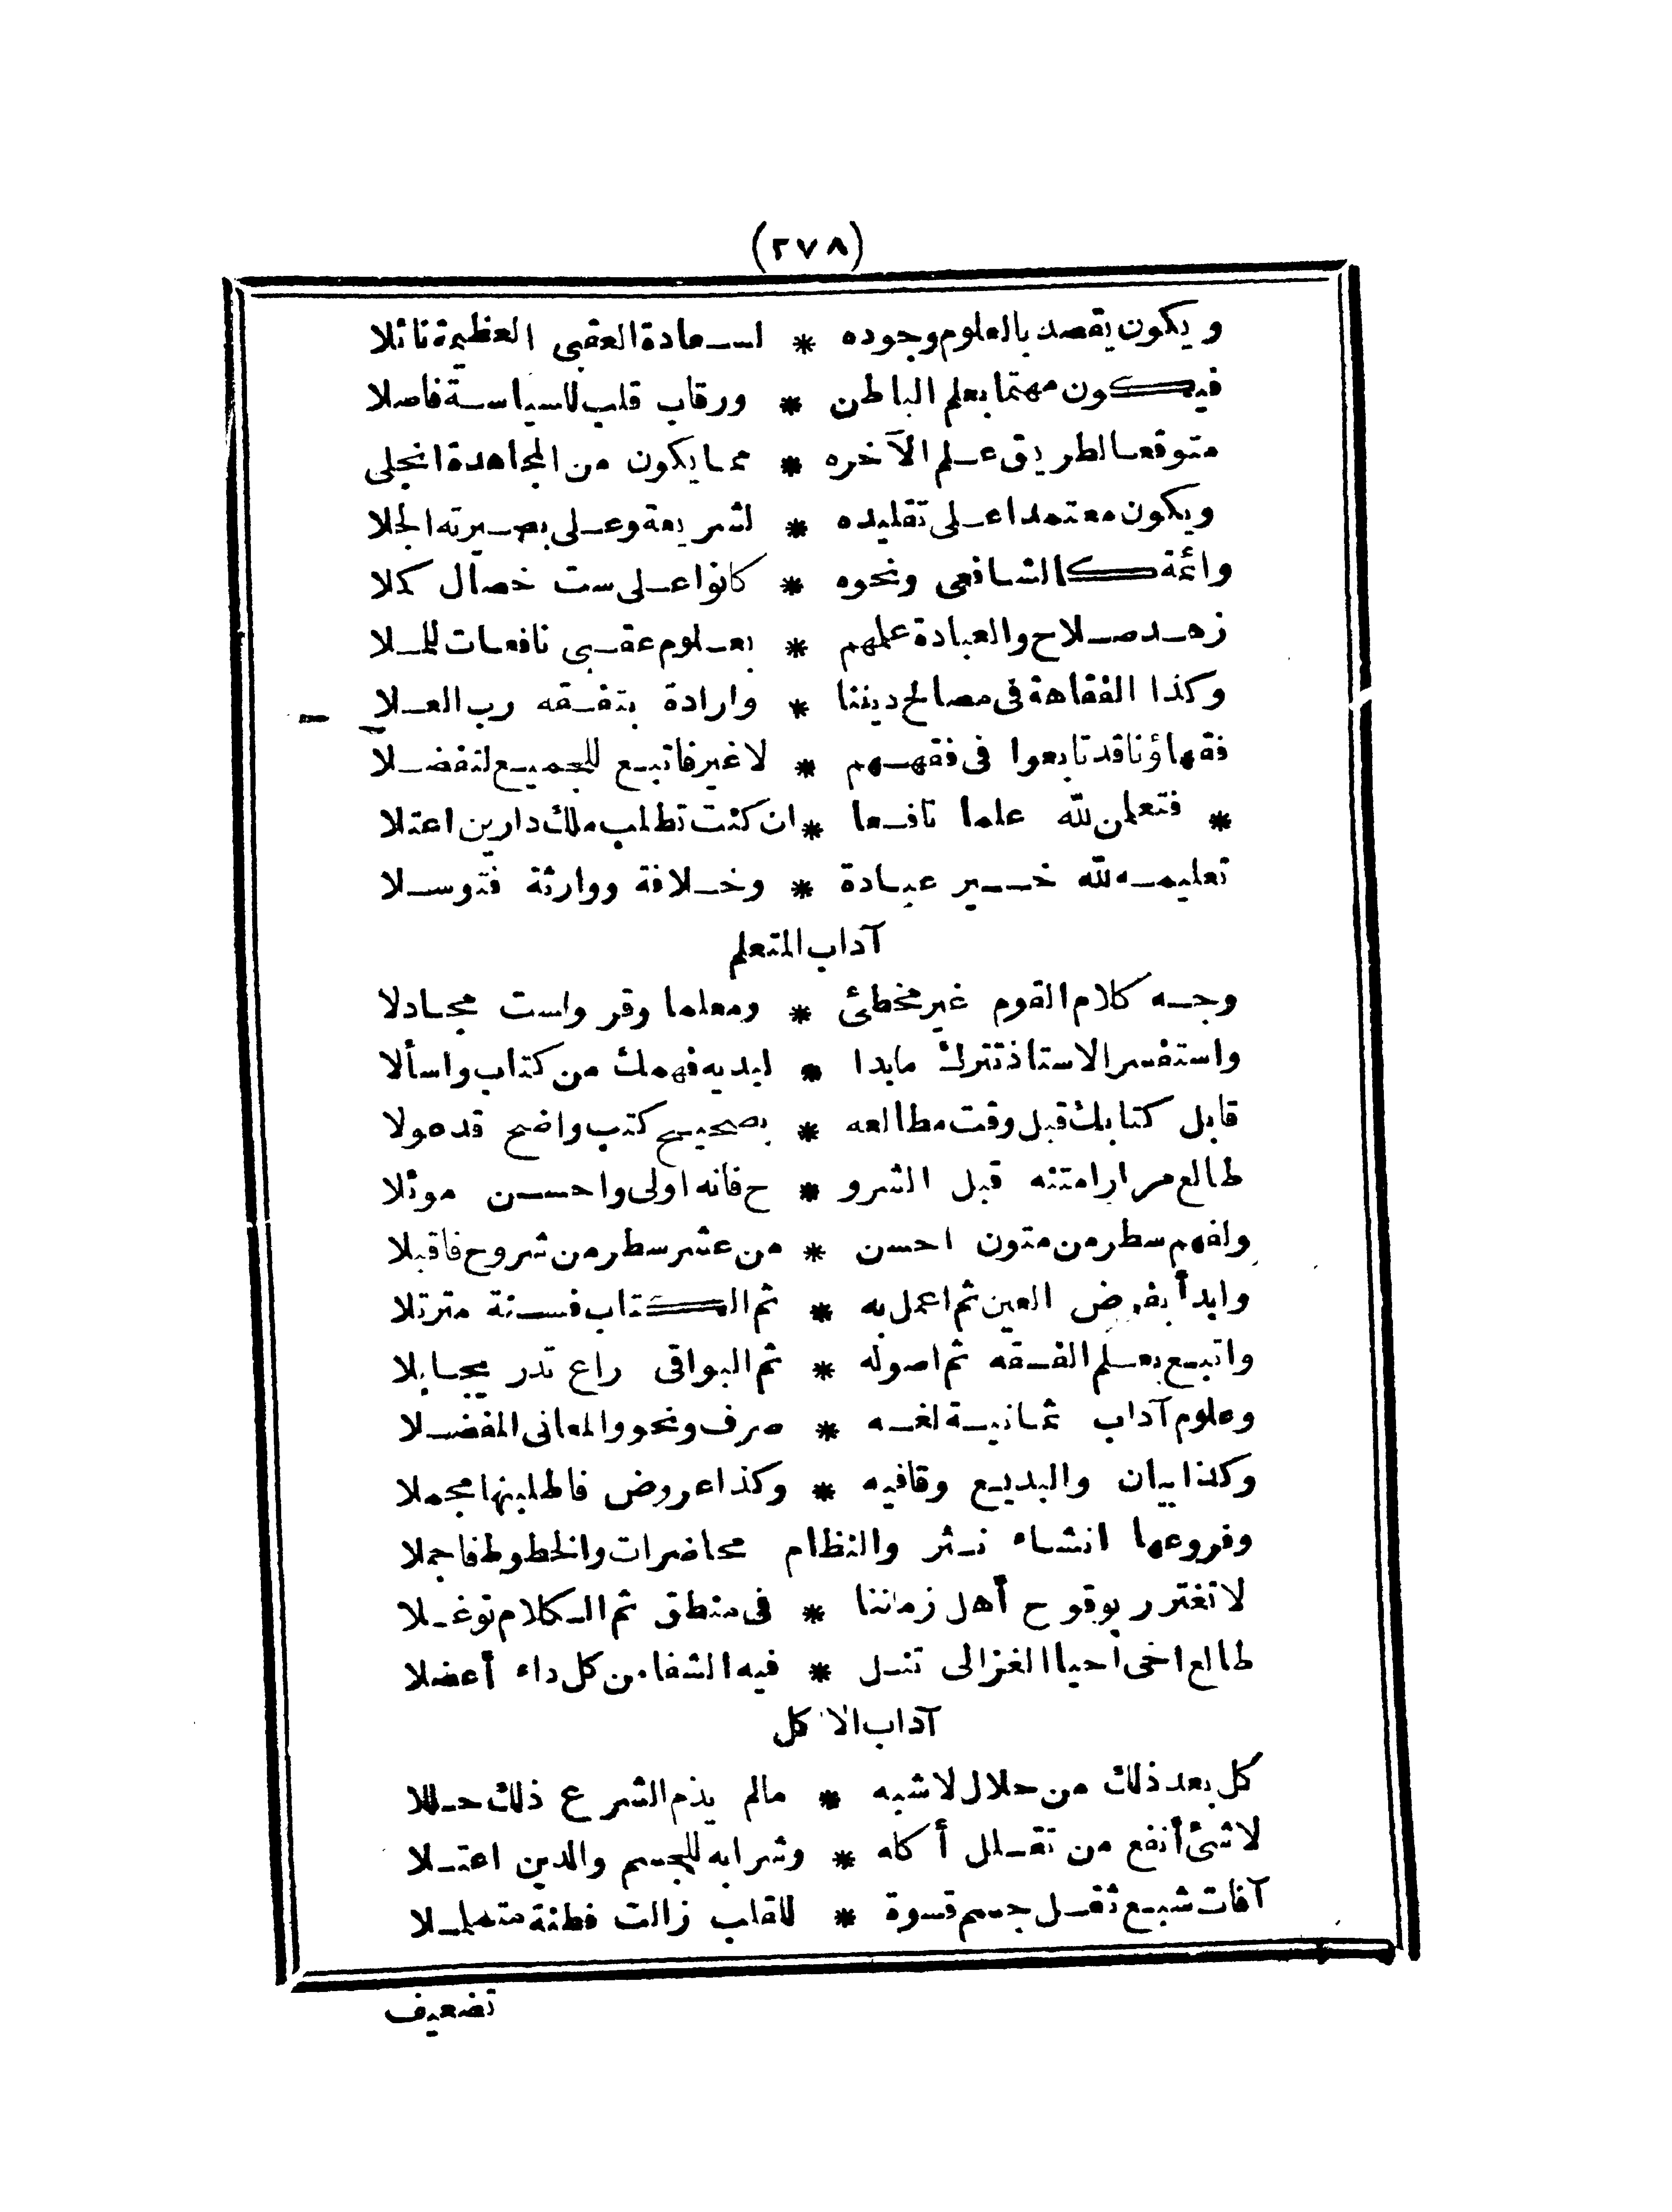 (٢٧٨)
ويكون يقصد بالعلوم وجوده * لسعادة العقبى العظيمة نائلا
فيكون مهتما بعلم الباطن * ورقاب قلب للسياسة فاصلا
متوقعا لطريق علم الآخره * مما يكون من المجاهدة انجلى
ويكون معتمدا على تقليده * لشريعة وعلى بصيرته الجلا
وائمة كالشافعى ونحوه * كانوا على ست خصال كملا
زهد صلاح والعبادة علمهم * بعلوم عقبى نافعات للملا
وكذا الفقاهة فى مصالح ديننا * وارادة بتفقه رب العلا
فقهاؤنا قد تابعوا فى فقههم * لا غير فاتبع للجميع لتفضلا
* فتعلمن لله علما نافعا * ان كنت تطلب ملك دارين اعتلا
تعليمه لله خير عبادة * وخلافة ووارثة فتوسلا
آداب المتعلم
وجه كلام القوم غير مخطئ * ومعلما وقر واست مجادلا
واستفسر الاستاذ تترك مابدا * لبديه فهمك من كتاب واسألا
قابل كتابك قبل وقت مطالعه * بصحيح كتب واضح قد هولا
طالع مرارا متنه قبل الشرو * ح فانه اولى واحسن موئلا
ولفهم سطر من متون احسن * من عشر سطر من شروح فاقبلا
وابدأ بفرض العين ثم اعمل به * ثم الكتاب فسنة مترتلا
واتبع بعلم الفقه ثم اصوله * ثم البواقى راع تدر محابلا
وعلوم آداب ثمانية لغه * صرف ونحو والمعانى المفضلا
وكذا بيان والبديع وقافيه * وكذا عروض فاطلبنها مجملا
وفروعها انشاء نثر والنظام محاضرات والخطوط فاجملا
لا تغترر بوقوح أهل زماننا * فى منطق ثم الكلام توغلا
طالع اخى أحيا الغزالى تنل * فيه الشفا من كل داء أعضلا
آداب الاكل
كل بعد ذلك من حلال لا شبه * مالم يذم الشرع ذلك حللا
لا شئ أنفع من تقلل أكله * وشرابه للجسم والدين اعتلا
آفات شبع ثقل جسم قسوة * للقلب زالت فطنة متململا
تضعيف